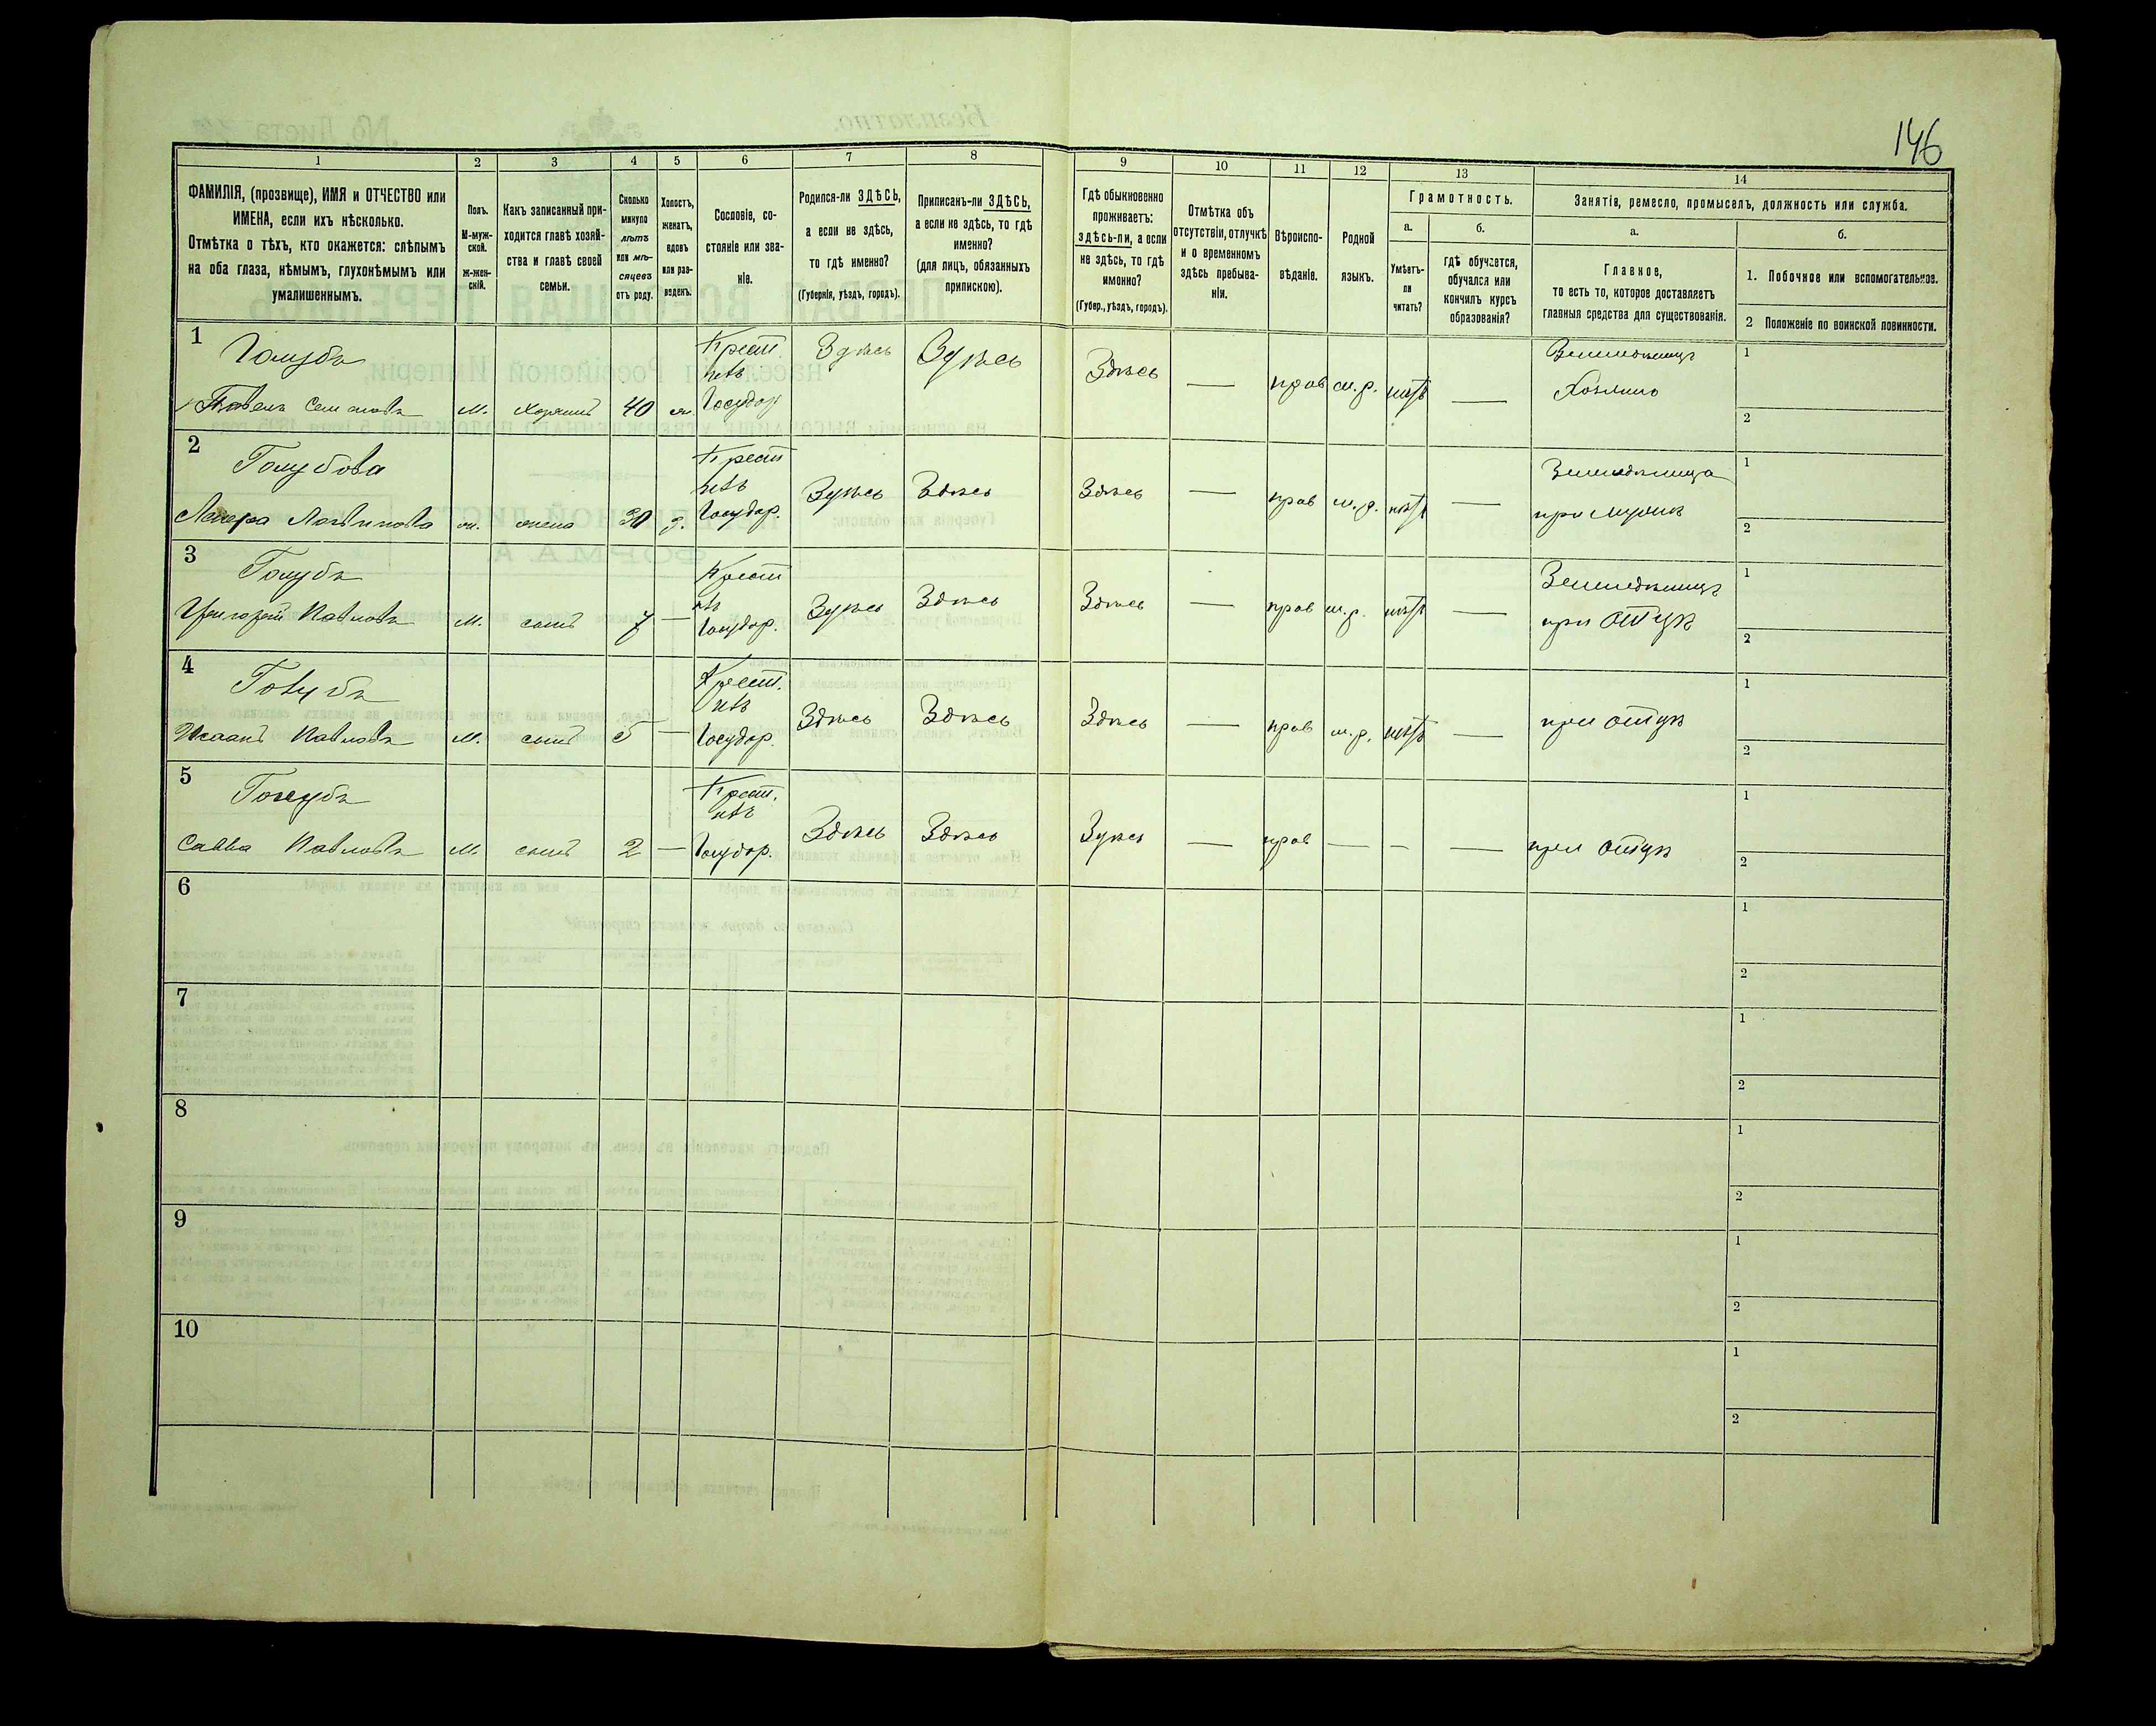 146
1 2 3 4 5 6 7 8 9 10 11 12 13 14
ФАМИЛІЯ, (прозвище), ИМЯ и ОТЧЕСТВО или
ИМЕНА, если ихъ нѣсколько.
Отмѣтка о тѣхъ, кто окажется: слѣпымъ
на оба глаза, нѣмымъ, глухонѣмымъ или
умалишеннымъ.
Полъ.
М-муж-
ской.
ж-жен-
скій.
Какъ записанный при-
ходится главѣ хозяй-
ства и главѣ своей
семьи.
Сколько
минуло
лѣтъ
или мѣ-
сяцевъ
отъ роду.
Холостъ,
женатъ,
вдовъ
или раз-
веденъ.
Сословіе, со-
стояніе или зва-
ніе.
Родился-ли ЗДѢСЬ,
а если не здѣсь,
то гдѣ именно?
(Губернія, уѣздъ, городъ).
Приписанъ-ли ЗДѢСЬ,
а если не здѣсь, то гдѣ
именно?
(для лицъ, обязанныхъ
припискою).
Гдѣ обыкновенно
проживаетъ:
здѣсь-ли, а если
не здѣсь, то гдѣ
именно?
(Губер., уѣздъ, городъ).
Отмѣтка объ
отсутствіи, отлучкѣ
и о временномъ
здѣсь пребыва-
ніи.
Вѣроиспо-
вѣданіе.
Родной
языкъ.
Грамотность.
а.
Умѣетъ-
ли
читать?
б.
гдѣ обучается,
обучался или
кончилъ курсъ
образованія?
Занятія, ремесло, промыселъ, должность или служба.
а.
Главное,
то есть то, которое доставляетъ
главныя средства для существованія.
б.
1. Побочное или вспомогательное.
2 Положеніе по воинской повинности.
1
Голубъ
Павелъ Семеновъ м. хозяинъ 40 ж. Крест. Государ. Здѣсь Здѣсь Здѣсь — прав м.р. нѣтъ — Земледѣлецъ
Хозяинъ
1
2
2
Голубова
Логвинова ж. жена 30 з. Крест Государ. Здѣсь Здѣсь Здѣсь — прав м.р. нѣтъ — Земледѣлица
при мужѣ
1
2
3
Голубъ
Григорій Павловъ м. сынъ 7 — Крест Государ. Здѣсь Здѣсь Здѣсь — прав м.р. нѣтъ — Земледѣлецъ
при отцѣ
1
2
4
Голубъ
Иванъ Павловъ м. сынъ 5 — Крест. Государ. Здѣсь Здѣсь Здѣсь — прав м.р. нѣтъ — при отцѣ
1
2
5
Голубъ
Савва Павловъ м. сынъ 2 — Крест. Государ. Здѣсь Здѣсь Здѣсь — прав — — — при отцѣ
1
2
6
1
2
7
1
2
8
1
2
9
1
2
10
1
2